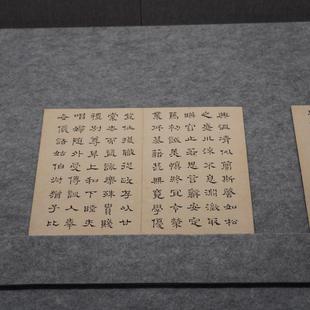 興溫清似蘭斯馨如松
之盛川流不息淵澄取
暎容止若思言辭安定
篤初誠美慎終宜令榮
業所基藉甚無竟學優
登仕攝職從政存以甘
棠去而益詠樂殊貴賤
禮別尊卑上和下睦夫
唱婦隨外受傅訓入奉
母儀諸姑伯叔猶子比